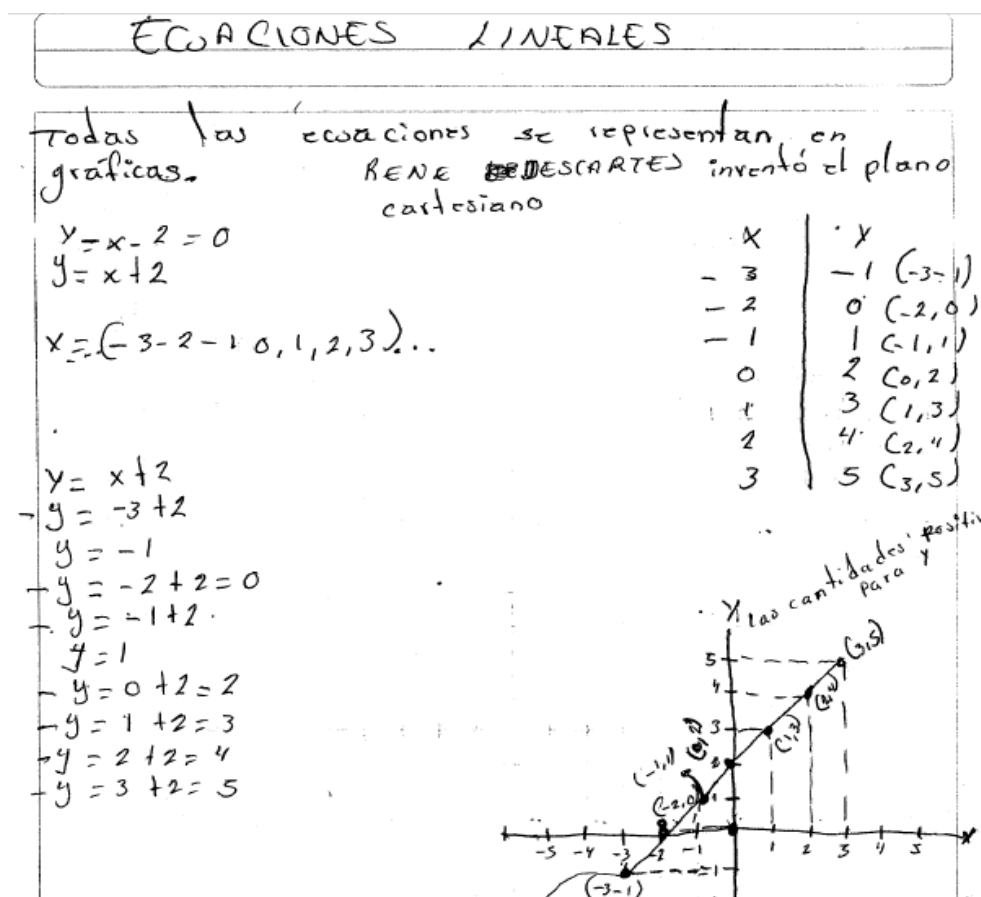 ECUACIONES LINEALES
Todas las ecuaciones se representan en
gráficas. RENE DESCARTES inventó el plano
cartesiano
Y=x-2=0
y=x+2
x=(-3-2-1 0,1,2,3)...
X Y
-3 -1 (-3-1)
-2 0 (-2,0)
-1 1 (-1,1)
0 2 (0,2)
1 3 (1,3)
2 4 (2,4)
3 5 (3,5)
Y= x+2
-y = -3+2
y = -1
-y = -2+2=0
-y = -1+2.
y=1
-y=0+2=2
-y=1+2=3
-y=2+2=4
-y=3+2=5
las cantidades
para y
Y
(3,5)
5
4
(2,4)
3
(1,3)
(0,2)
2
(-1,1)
1
(-2,0)
-5 -4 -3 -2 -1 1 2 3 4 5 X
-1
(-3-1)